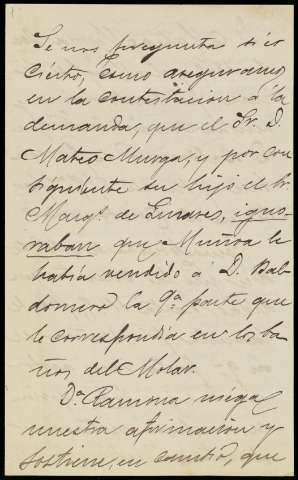 Se nos pregunta si es
cierto, como aseguramos
en la contestacion á la
demanda, que el Sr. D.
Mateo Murga, y por con
siguiente su hijo el Sr.
Marqs. de Linares, igno-
raban que Muñoa le
habia vendido á D. Bal-
domero la 9.ª parte que
le correspondia en los ba-
ños del Molar.
Dª Ramona niega
nuestra afirmacion y
sostiene, en cambio, que